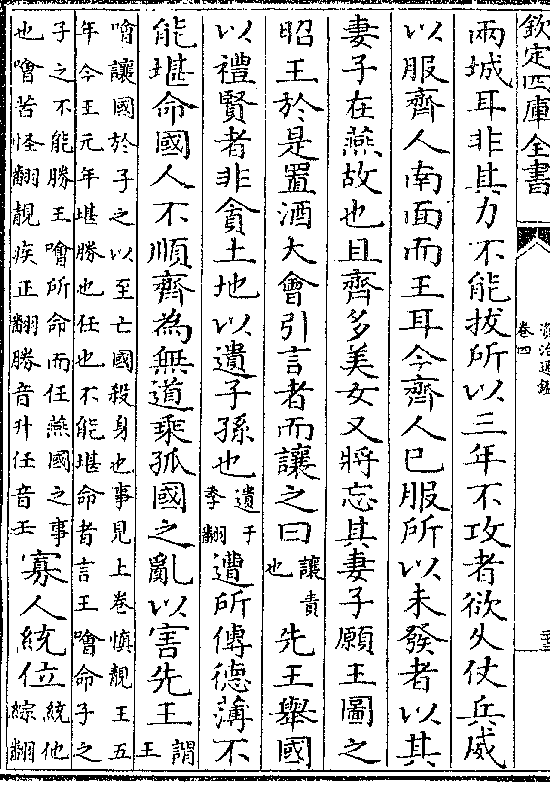 欽定四庫全書
資治通鑑
卷四
兩城耳非其力不能拔所以三年不攻者欲久仗兵威
以服齊人南面而王耳今齊人已服所以未發者以其
妻子在燕故也且齊多美女又將忘其妻子願王圖之
昭王於是置酒大會引言者而讓之曰讓責也先王舉國
以禮賢者非貪土地以遺子孫也遺于季翻遭所傳德薄不
能堪命國人不順齊為無道乘孤國之亂以害先王謂王
噲讓國於子之以至亡國殺身也事見上卷慎靚王五
年今王元年堪勝也任也不能堪命者言王噲命子之
子之不能勝王噲所命而任燕國之事
也噲苦怪翻靚疾正翻勝音升任音壬寡人統位統他綜翻